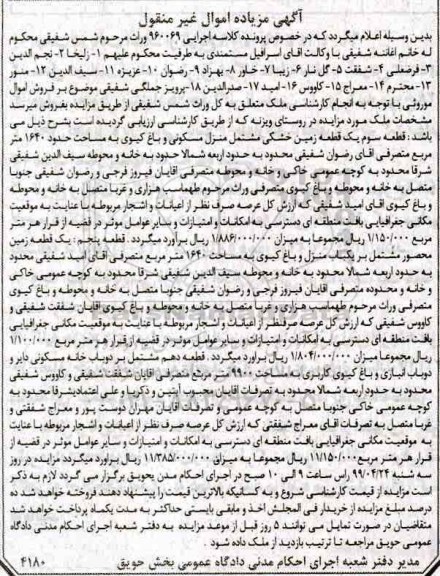 آگهی مزایده اموال غیر منقول
بدین وسیله اعلام میگردد که در خصوص پرونده کلاسه اجرایی ۹۶۰۰۶۹ وراث مرحوم شمس شفیقی محکوم
له خانم اغانته شفیقی با وکالت آقای اسرافیل مستمندی به طرفیت محکوم علیهم ۱- زلیخا ۲- نجم الدین
۳- فرضعلی ۴- شفقت ۵- گل نار ۶- زیبا ۷- خاور ۸- بهزاد ۹- رضوان ۱۰- عزیزه ۱۱- سیف الدین ۱۲- منور
۱۳- محترم ۱۴- معراج ۱۵- کاووس ۱۶- امید ۱۷- صدرالدین ۱۸- پرویز جملگی شفیقی موضوع بر فروش اموال
موروثی با توجه به انجام کارشناسی ملک متعلق به کل وراث شمس شفیقی از طریق مزایده بفروش میرسد
مشخصات ملک مورد مزایده در روستای ویزنه که از طریق کارشناسی ارزیابی گردیده است بشرح ذیل می
باشد : قطعه سوم یک قطعه زمین خشکی مشتمل منزل مسکونی و باغ کیوی به مساحت حدود ۱۶۴۰ متر
مربع متصرفی آقای رضوان شفیقی محدود به حدود اربعه شمالا حدود به خانه و محوطه سیف الدین شفیقی
شرقا محدود به کوچه عمومی خاکی و خانه و محوطه متصرفی آقایان فیروز فرجی و رضوان شفیقی جنوبا
متصل به خانه و محوطه و باغ کیوی متصرفی وراث مرحوم طهماسب هزاری و غربا متصل به خانه و محوطه
و باغ کیوی آقای امید شفیقی که ارزش کل عرصه صرف نظر از اعیانات و اشجار مربوطه با عنایت به موقعیت
مکانی جغرافیایی بافت منطقه ای دسترسی به امکانات و امتیازات و سایر عوامل موثر در قضیه از قرار هر متر
مربع ۱/۱۵۰/۰۰۰ ریال مجموعا به میزان ۱/۸۸۶/۰۰۰/۰۰۰ ریال برآورد میگردد . قطعه پنجم : یک قطعه زمین
محصور مشتمل بر یکباب منزل و باغ کیوی به مساحت ۱۶۴۰ متر مربع متصرفی آقای امید شفیقی محدود
به حدود اربعه شمالا محدود به خانه و محوطه سیف الدین شفیقی شرقا محدود به کوچه عمومی خاکی
و خانه و محدوده متصرفی آقایان فیروز فرجی و رضوان شفیقی جنوبا متصل به خانه و محوطه و باغ کیوی
متصرفی وراث مرحوم طهماسب هزاری و غربا متصل به خانه و محوطه و باغ کیوی آقایان شفقت شفیقی و
کاووس شفیقی که ارزش کل عرصه صرفنظر از اعیانات و اشجار مربوطه با عنایت به موقعیت مکانی جغرافیایی
بافت منطقه ای دسترسی به امکانات و امتیازات و سایر عوامل موثر در قضیه از قرار هر متر مربع ۱/۱۰۰/۰۰۰
ریال مجموعا میزان ۱/۸۰۴/۰۰۰/۰۰۰ ریال برآورد میگردد . قطعه دهم مشتمل بر دوباب خانه مسکونی دایر و
دوباب انباری و باغ کیوی کاربری به مساحت ۹۹۰۰ متر مربع متصرفی آقایان شفقت شفیقی و کاووس شفیقی
محدود به حدود اربعه شمالا محدود به تصرفات آقایان محبوب آبتین و ذکریا و علی اعتمادبشرقا محدود به
کوچه عمومی خاکی جنوبا متصل به کوچه عمومی و تصرفات آقایان مهران دوست پور و معراج شفتی و
غربا متصل به تصرفات آقای معراج شفقتی که ارزش کل عرصه صرف نظر از اعیانات و اشجار مربوطه با عنایت
به موقعیت مکانی جغرافیایی بافت منطقه ای دسترسی به امکانات و امتیازات و سایر عوامل موثر در قضیه از
قرار هر متر مربع ۱/۱۵۰/۰۰۰ ریال مجموعا به میزان ۱۱/۳۸۵/۰۰۰/۰۰۰ ریال برآورد میگردد مزایده در روز
سه شنبه ۹۹/۰۴/۲۴ راس ساعت ۹ الی ۱۰ صبح در اجرای احکام مدنی حویق برگزار می گردد لازم به ذکر
است مزایده از قیمت کارشناسی شروع و به کسانیکه بالاترین قیمت را پیشنهاد دهند فروخته خواهد شد ده
درصد مبلغ مزایده از خریدار فی المجلس اخذ و مابقی بایستی حداکثر به مدت یکماه پرداخت خواهد شد
متقاضیان در صورت تمایل می توانند ۵ روز قبل از موعد مزایده به دفتر شعبه اجرای احکام مدنی دادگاه
عمومی حویق مراجعه تا ترتیب بازدید از ملک داده شود .
مدیر دفتر شعبه اجرای احکام مدنی دادگاه عمومی بخش حویق
۴۱۸۰